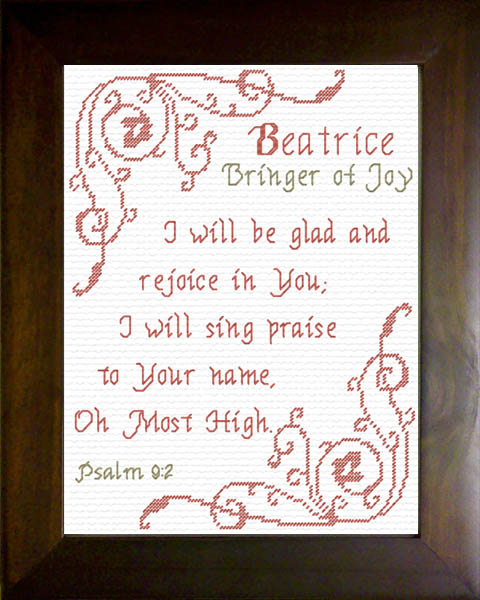 Beatrice
Bringer of Joy
I will be glad and
rejoice in You;
I will sing praise
to Your name,
Oh Most High.
Psalm 9:2